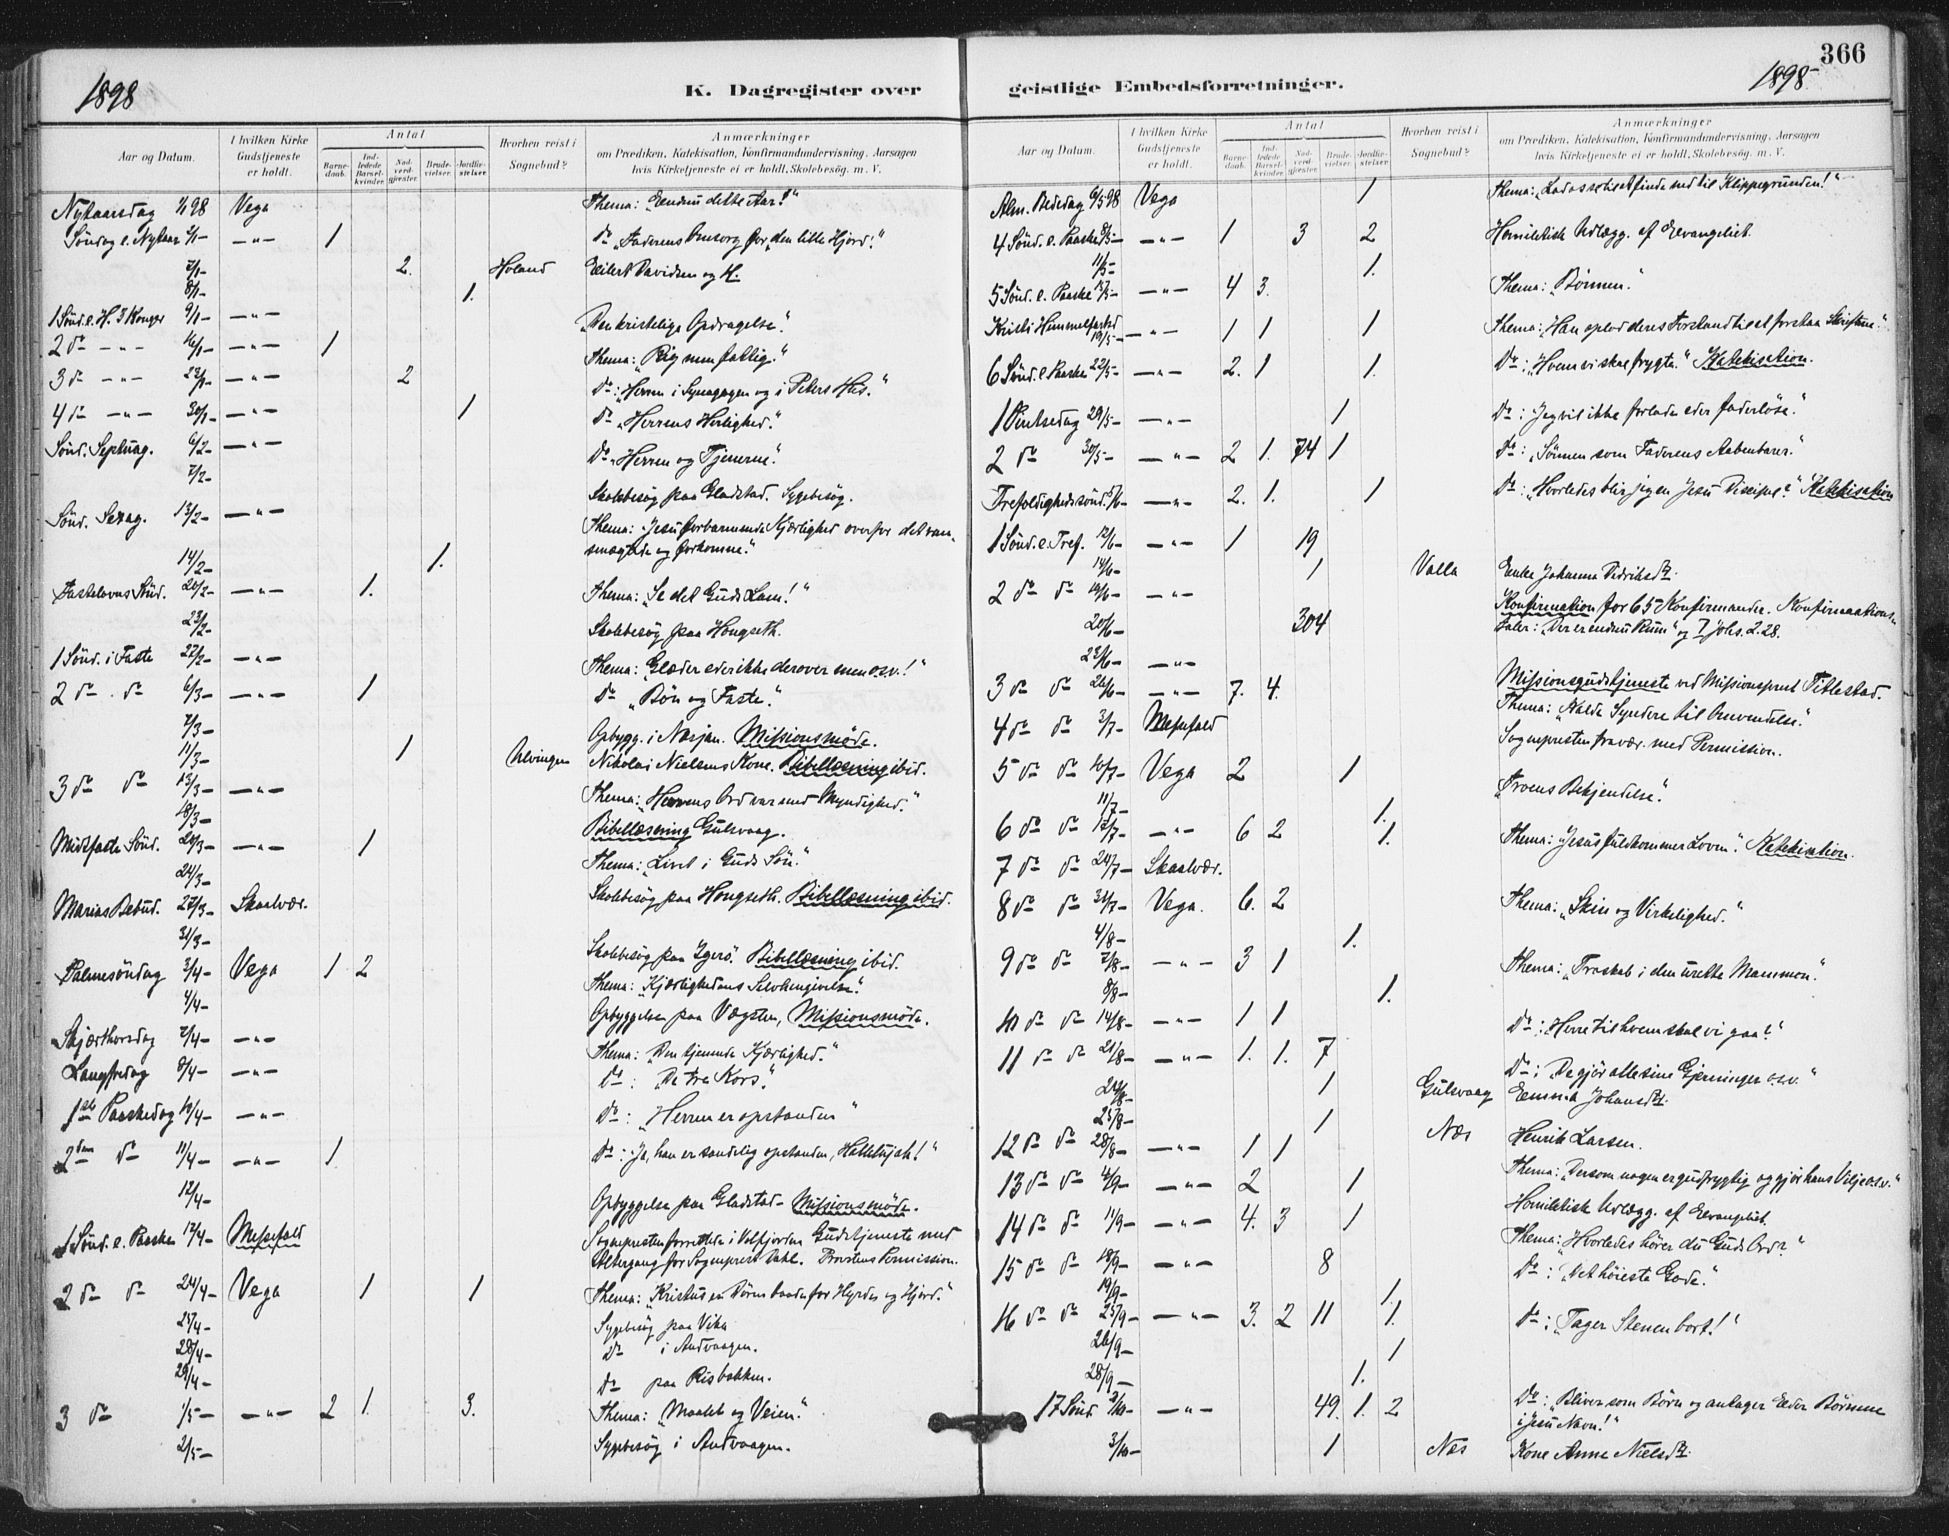 1898
K. Dagregister over
Aar og Datum.
I hvilken Kirke Gudstjeneste er holdt.
Antal
Barne-daab.
Ind-ledede Barsel-kvinder.
Nad-verd-gjester.
Brude-vielser.
Jordfæ-stelser.
Hvorhen reist i Sognebud?
Anmærkninger
om Prædiken, Katekisation, Konfirmandundervisning. Aarsagen
hvis Kirketjeneste ei er holdt. Skolebesøg. m. V.
Nytaarsdag 1/1 98 Vega Thema: "Endnu dette Aar!"
Søndag e. Nytaar 2/1 — " — 1 do "Faderens Omsorg for den lille Hjord."
7/1 — 2. Holand Eilert Davidsen og H.
8/1 — 1.
1 Sønd. e. H. 3 Konger 9/1 — " — "Den kristelige Opdragelse."
2 do — " — 16/1 — " — 1 Thema: "Rig men fattig."
3 do — " — 23/1 — " — 2 do: "Herren i Synagogen og i Peters Hus."
4 do — " — 30/1 — " — 1 do "Herrens Herlighed."
Sønd. Septuag. 6/2 — " — do "Herren og Tjenerne."
7/2 — Skolebesøg paa Gladstad. Sygebesøg.
Sønd. Sexag. 13/2 — " — Thema: Jesu forbarmende Kjærlighed overfor det van-
smægtede og forkomne."
14/2 — 1.
Fastelavns Sønd. 20/2 — " — 1. Thema: "Se det Guds Lam!"
23/2 — Skolebesøg paa Hongseth.
1 Sønd. i Faste 27/2 — " — Thema: "Glæder eder ikke derover men o.s.v.!"
2 do do 6/3 — 1 do "Bøn og Faste."
7/3 — Opbygg. i Nærjen. Missionsmøde.
11/3 — 1 Ulvingen Nikolai Nielsens Kone. Bibellæsning ibid.
3 do do 13/3 — " — Thema: "Herrens Ord var med Myndighed."
18/3 — Bibellæsning Gulsvaag.
Midfaste Sønd. 20/3 — " — 1 Thema: "Livet i Guds Søn."
24/3 — Skolebesøg paa Hongseth. Bibellæsning ibid.
Marias Bebud. 27/3 — Skaalvær.
31/3 — Skolebesøg paa Igerø. Bibellæsning ibid.
Palmesøndag 3/4 — Vega 1 2 Thema: "Kjærlighedens Selvhengivelse."
4/4 — Opbyggelse paa Vægsten, Missionsmøde.
Skjærthorsdag 7/4 — " — Thema: "Den tjenende Kjærlighed."
Langfredag 8/4 — " — do: "De tre Kors."
1ste Paaskedag 10/4 — " — do: "Herren er opstanden"
2den do 11/4 — " — 1. do: "Ja, han er sandelig opstanden, Hallelujah!"
12/4 — Opbyggelse paa Gladstad — Missionsmøde.
1 Sønd. e. Paaske 17/4 — Messefald Sognepresten forrettede i Velfjorden Gudstjeneste med
Altergang for Sogneprest Dahl. Provstens Permission.
2 do do 24/4 — Vega 1 1 Thema: "Kristus en Dør baade for Hyrder og Hjord."
25/4 — Sygebesøg paa Vika
28/4 — do i Andvaagen.
29/4 — do paa Risbakken.
3 do 1/5 — " — 2 1. 3. Thema: "Maalet og Veien."
2/5 — Sygebesøg i Andvaagen.
366
1898
geistlige Embedsforretninger.
Aar og Datum.
I hvilken Kirke Gudstjeneste er holdt.
Antal
Barne-daab.
Ind-ledede Barsel-kvinder.
Nad-verd-gjester.
Brude-vielser.
Jordfæ-stelser.
Hvorhen reist i Sognebud?
Anmærkninger
om Prædiken, Katekisation, Konfirmandundervisning, Aarsagen
hvis Kirketjeneste ei er holdt, Skolebesøg. m. V.
Alm. Bededag 6/5 98 Vega 1 Thema: "Lad os stilet finde ned til Klippegrunden!"
4 Sønd. e. Paaske 8/5 — " — 1 3 2 Homiletisk Udlægg. af Evangeliet.
11/5 — 1.
5 Sønd. e. Paaske 15/5 — " — 4 3. Thema: "Bønnen."
Kristi Himmelfartsd 19/5 — " — 1 1 1 Thema: "Han oplod deres Forstand til at forstaa Skrifterne."
6 Sønd. e. Paaske 22/5 — " — 2. 1 1. do: "Hvem vi skal frygte." Katekisation.
1 Pintsedag 29/5 — " — 1 do: Jeg vil ikke forlade eder faderløse."
2 do 30/5 — " — 2 1. 74 1 do: "Sønnen som Faderens Aabenbarer."
Trefoldighedssønd. 5/6 — " — 2. 1. 1 do: "Hvorledes blir jeg en Jesu Discipel?" Katekisation
1 Sønd. e. Tref. 12/6 — " — 1 19
14/6 — 1 Valla Enke Johanna Didriksdtr.
2 do do 19/6 — " — Konfirmation for 65 Konfirmander. Konfirmations-
20/6 — 304 taler: "Der er endnu Rum" og I Johs. 2. 28.
23/6 — " —
3 do do 26/6 — " — 7. 4. Missionsgudstjeneste ved Missionsprest Tillestad.
Thema: "Kalde Syndere til Omvendelse."
4 do do 3/7 — Messefald Sognepresten fravær. med Permission.
5 do do 10/7 — Vega 2 1 "Troens Bekjendelse."
11/7 — 1.
6 do do 17/7 — " — 6 2 1. Thema: "Jesus fuldkommer Loven". Katekisation.
7 do do 24/7 — Skaalvær.
8 do do 31/7 — Vega. 6. 2 Thema: "Skin og Virkelighed."
4/8 — 1.
9 do do 7/8 — " — 3 1 Thema: "Troskab i den urette Mammon."
8/8 — 1.
10 do do 14/8 — " — 1 1 do: "Herre til hvem skal vi gaa?"
11 do do 21/8 — " — 1. 1. 7 do: "De gjør alle sine Gjerninger o.s.v."
24/8 — 1 Gulsvaag Emma Johansdtr.
25/8 — 1 Næs Henrik Larsen.
12 do do 28/8 — " — 1 1 Thema: "Dersom nogen er gudfrygtig og gjør hans Vilje o.s.v."
13 do do 4/9 — " — 2 1 Homiletisk Udlægg. af Evangeliet.
14 do do 11/9 — " — 4. 3 1 Thema: "Hvorledes hører du Guds Ord?"
15 do do 18/9 — " — 8 do: "Det høieste Gode."
19/9 — 1.
16 do do 25/9 — " — 3. 2 11 1. do: "Tager Stenen bort!"
26/9 — 1
28/9 — 1.
17 Sønd. 2/10 — " — 49. 1. 2 do: "Bliver som Børn og antager Eder Børnene
i Jesu Navn!"
3/10 — 1 Næs Kone Anne Nielsdtr.